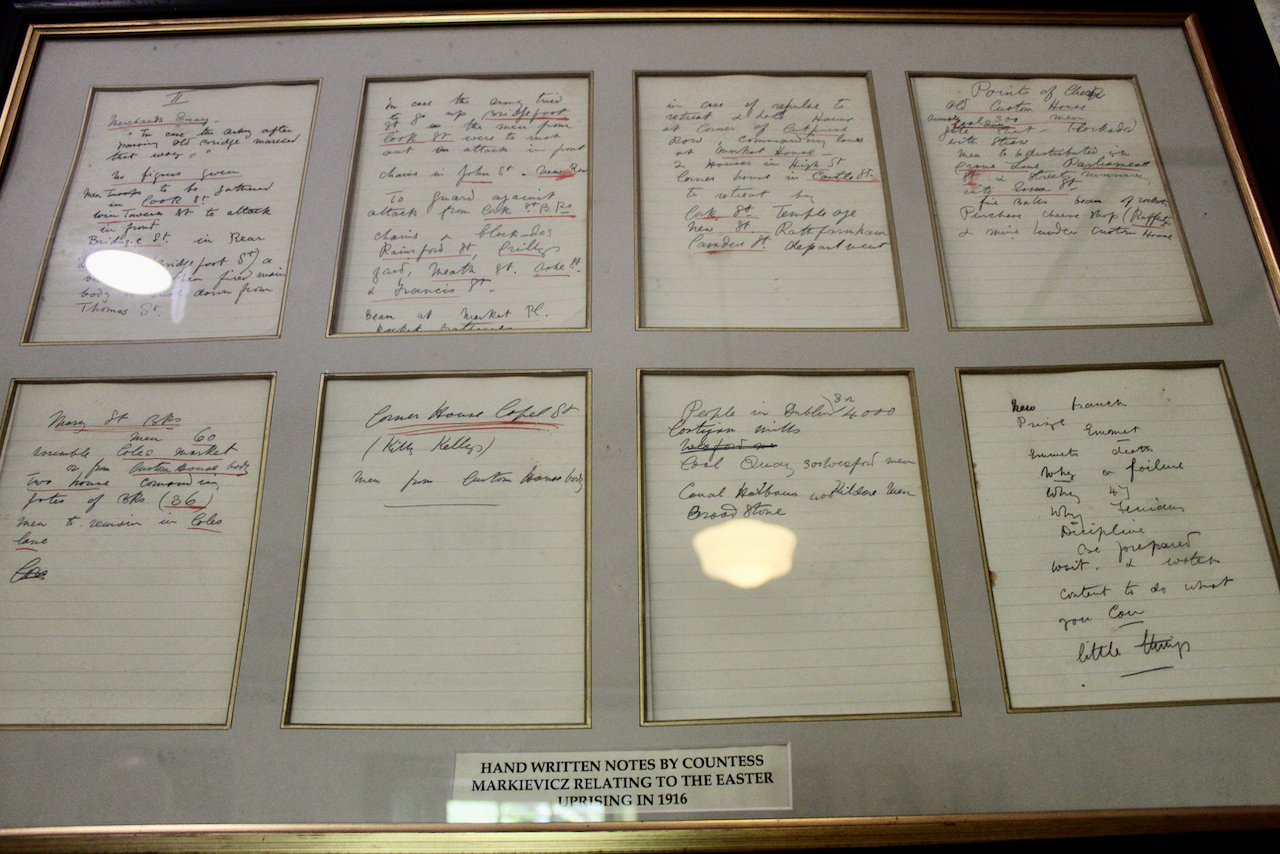 II
Merchants Quay -
"In case the army after
passing Old Bridge marched
that way - "
No figures given
Men Troops to be gathered
in Cook St
Win Tavern St to attack
in front
Bridge St. in Rear
bridgefoot St) a
fired main
body down from
Thomas St.
In case the army tried
to go up Bridgefoot
St the men from
Cook St were to
out in attack in front
chains in John St & New Row
To guard against
attack from Cork St. Bks
chains blockades
Rainsford St, Crilly's
yard, Meath St.
& Francis St.
Beam at Market Pl.
Rocket Batteries
in case of repulse to
retreat & hold House
at Corner of Cutpurse
Row, commanding lanes
at Market House
2 Houses in High St
Corner house in Castle St.
to retreat by
Cork St. Templeoge
New St. Rathfarnham
Camden St. department
Points of Check
Old Custom House
300 men
gate shut - blockaded
with
men to be distributed in
Crane Lane, Parliament
St & Streets running
into Essex St
Purchase cheese shop
& mine under Custom House
Mary St Bks
men 60
assemble Coles market
or from Custom House body
two houses commanding
gates of Bks (36)
men to remain in Coles
lane
Corner House Capel St
(Kitty Kellys)
men from Custom House body
People in Dublin 3 or 4.000
Costijan mills
Coal Quay 300 Wexford men
Canal Harbour 400 Kildare men
Broad Stone
New branch
Prize Emmet
Emmets death
Why a failure
Why 47
Why Fenians
Discipline
be prepared
wait. & watch
content to do what
you Can
little things
HAND WRITTEN NOTES BY COUNTESS
MARKIEVICZ RELATING TO THE EASTER
UPRISING IN 1916